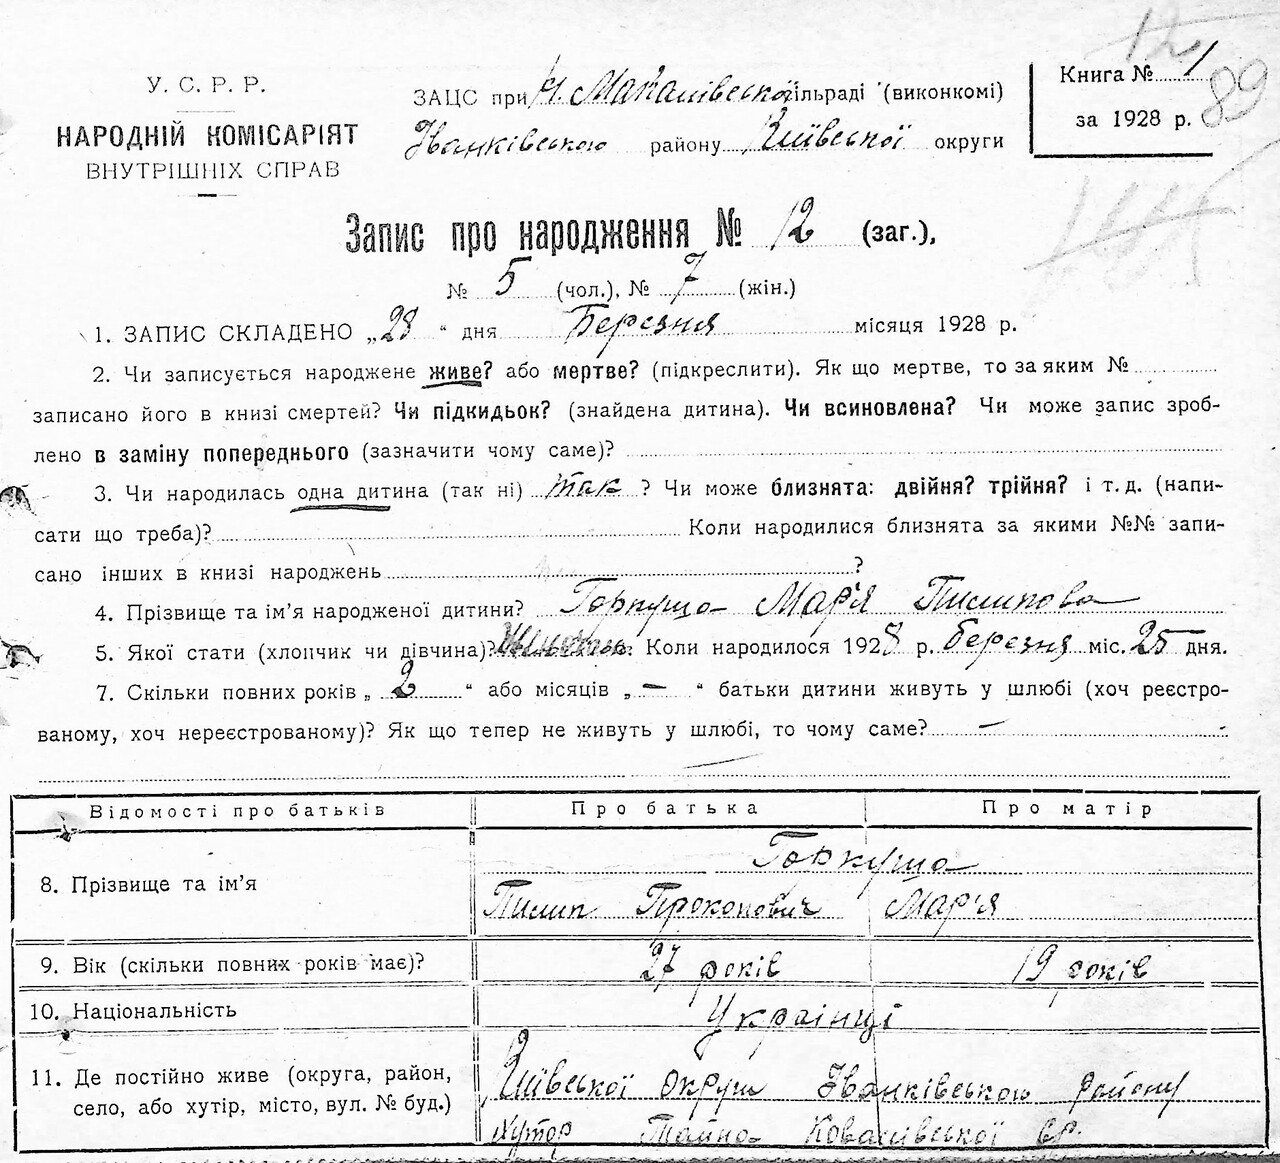 12
89
У. С. Р. Р.
НАРОДНІЙ КОМІСАРІЯТ
ВНУТРІШНІХ СПРАВ
ЗАЦС при Н. Макалівеской сільраді (виконкомі)
Іванківською району Київської округи
Книга № 1
за 1928 р.
Запис про народження № 12 (заг.),
№ 5 (чол.), № 7 (жін.)
1. ЗАПИС СКЛАДЕНО „28“ дня Березня місяця 1928 р.
2. Чи записується народжене живе? або мертве? (підкреслити). Як що мертве, то за яким №
записано його в книзі смертей? Чи підкидьок? (знайдена дитина). Чи всиновлена? Чи може запис зроб-
лено в заміну попереднього (зазначити чому саме)?
3. Чи народилась одна дитина (так ні) так ? Чи може близнята: двійня? трійня? і т. д. (напи-
сати що треба)? Коли народилися близнята за якими №№ запи-
сано інших в книзі народжень ?
4. Прізвище та ім’я народженої дитини? Горкуша Мар'я Пилипова
5. Якої стати (хлопчик чи дівчина)? Коли народилося 1928 р. березня міс. 25 дня.
7. Скільки повних років „ 2 “ або місяців „ — “ батьки дитини живуть у шлюбі (хоч реєстро-
ваному, хоч нереєстрованому)? Як що тепер не живуть у шлюбі, то чому саме? —
Відомості про батьків Про батька Про матір
8. Прізвище та ім’я Горкуша
Пилип Прокопович Мар'я
9. Вік (скільки повних років має)? 27 років 19 років
10. Національність Украінці
11. Де постійно живе (округа, район, село, або хутір, місто, вул. № буд.) Київської округи Іванківською району
хутор